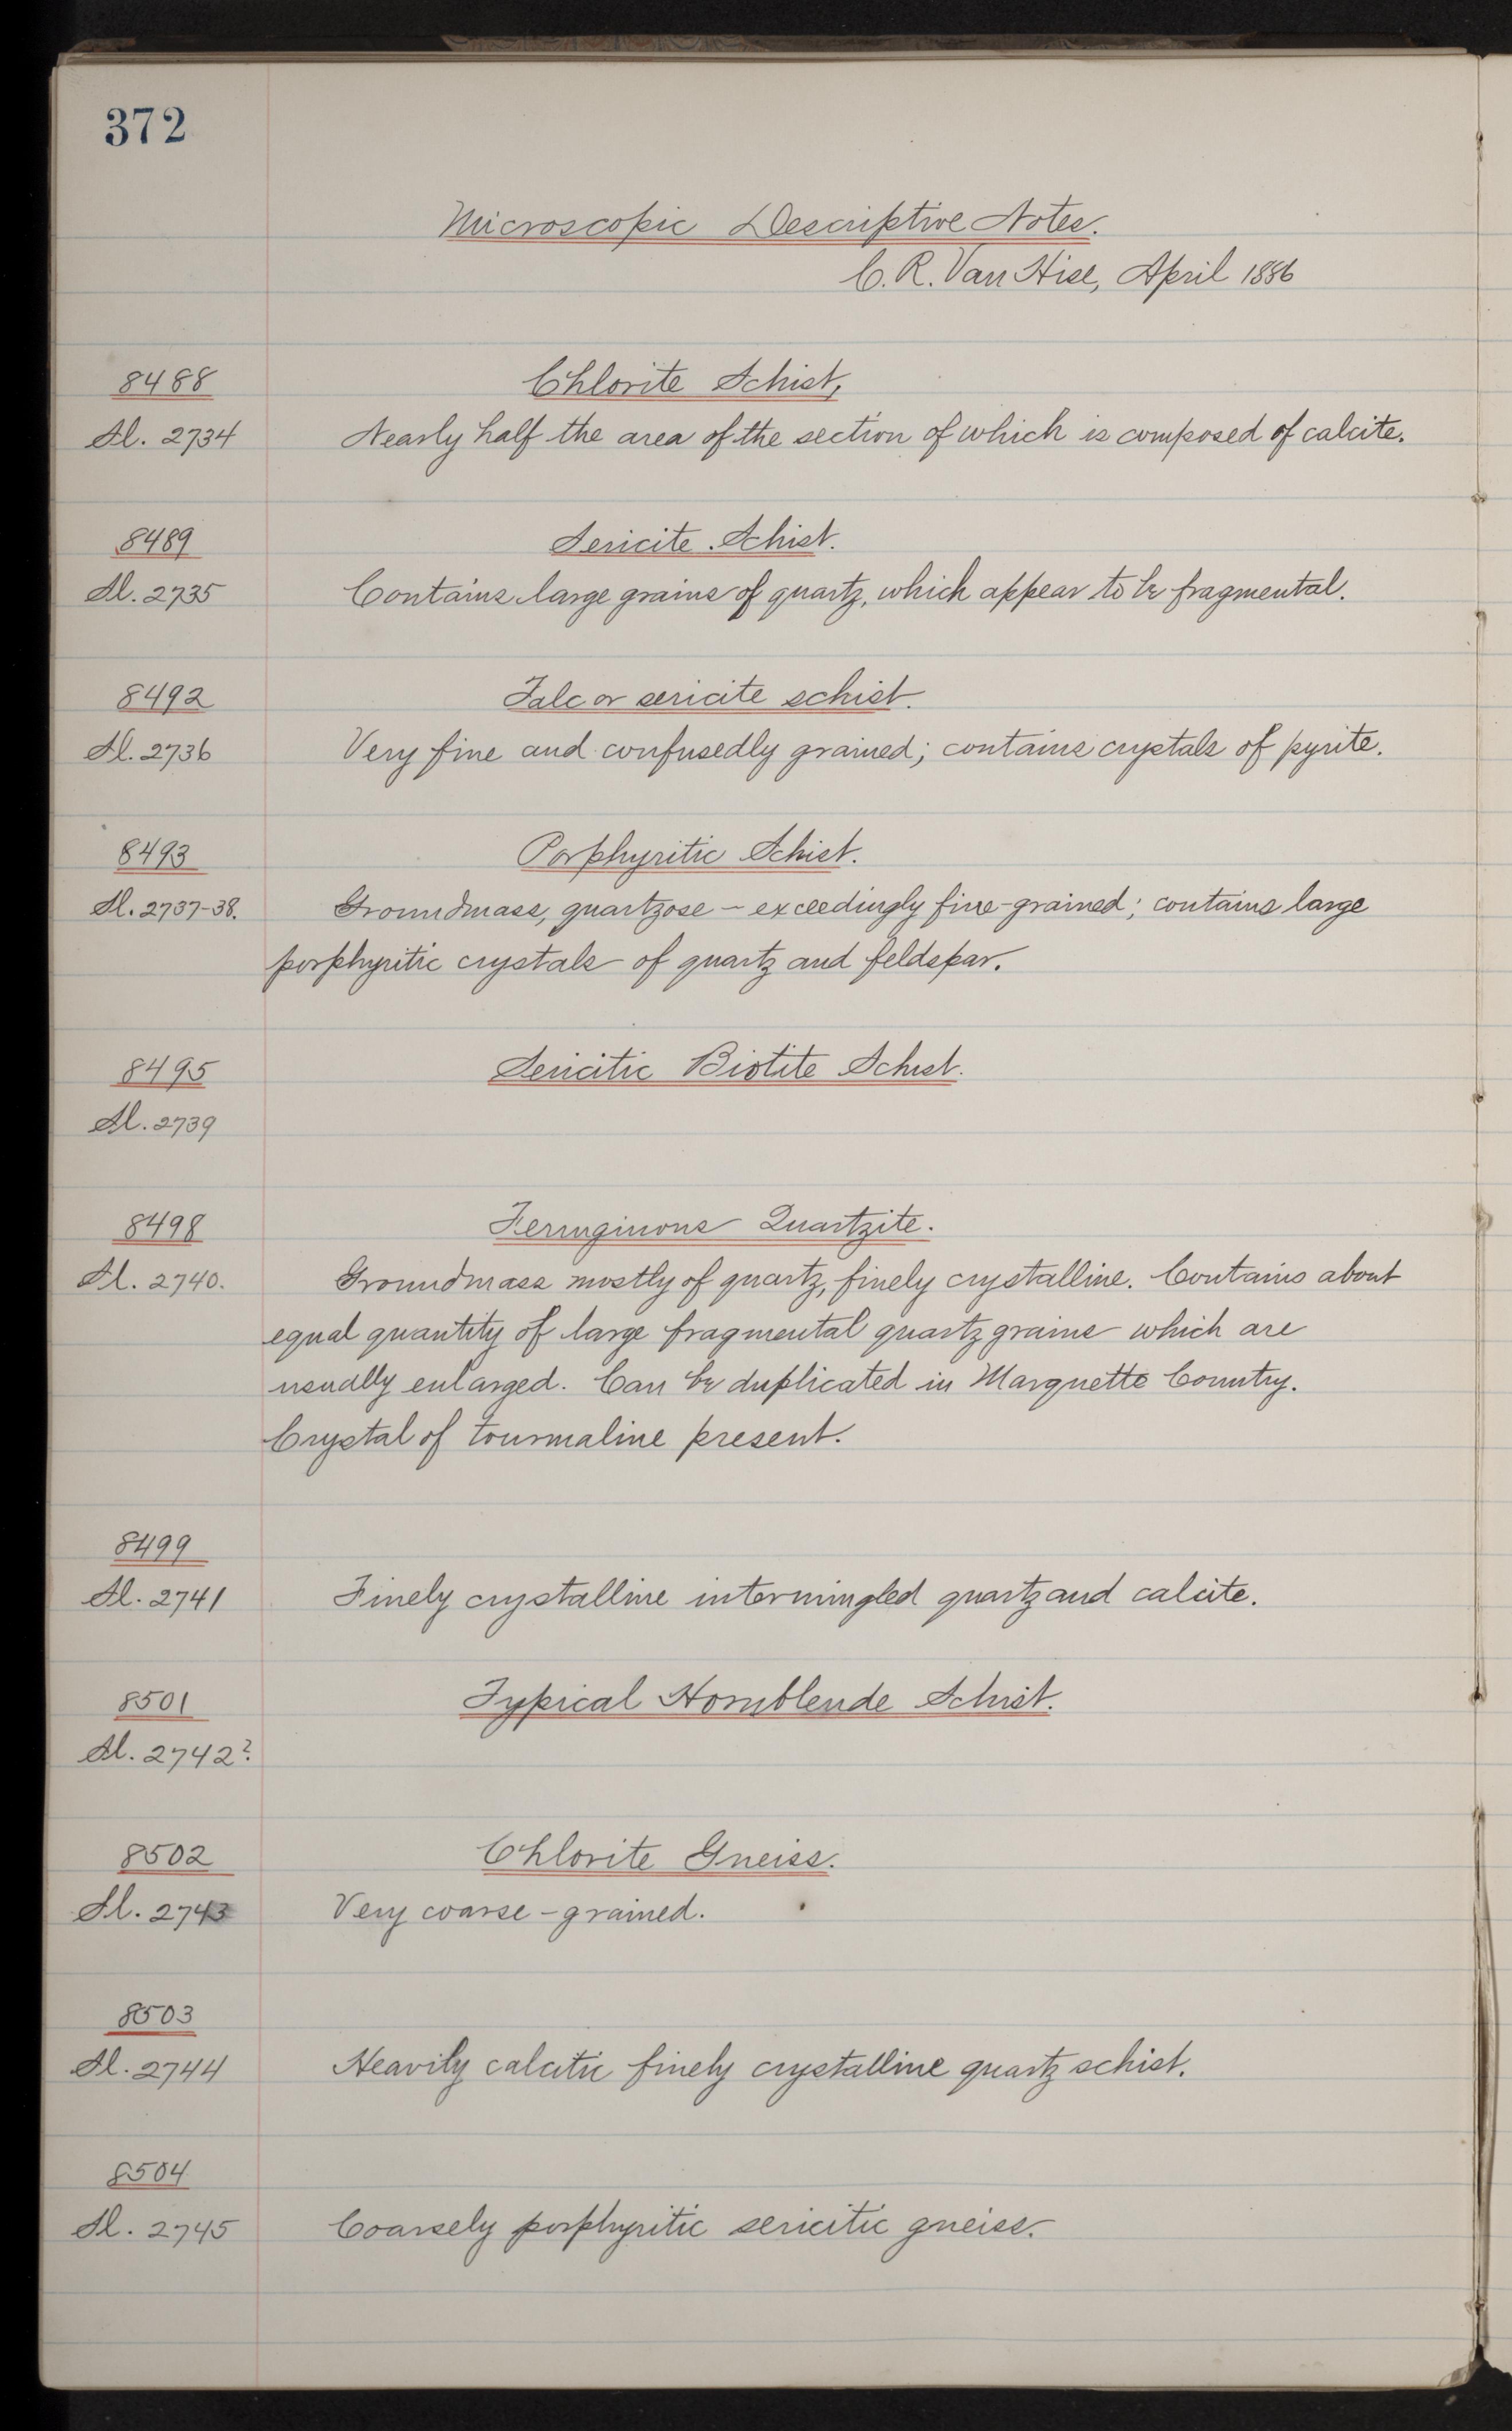 372
Microscopic Descriptive Notes.
C. R. Van Hise, April 1886
8488
Chlorite Schist,
Sl. 2734
Nearly half the area of the section of which is composed of calcite.
8489
Sericite Schist.
Sl. 2735
Contains large grains of quartz, which appear to be fragmental.
8492
Talc or sericite schist.
Sl. 2736
Very fine and confusedly grained; contains crystals of pyrite.
8493
Porphyritic Schist.
Sl. 2737-38.
Groundmass, quartzose - exceedingly fine-grained; contains large
porphyritic crystals of quartz and feldspar.
8495
Sericitic Biotite Schist.
Sl. 2739
8498
Ferruginous Quartzite.
Sl. 2740.
Groundmass mostly of quartz, finely crystalline. Contains about
equal quantity of large fragmental quartz grains which are
usually enlarged. Can be duplicated in Marquette Country.
Crystal of tourmaline present.
8499
Sl. 2741
Finely crystalline intermingled quartz and calcite.
8501
Typical Hornblende Schist.
Sl. 2742?
8502
Chlorite Gneiss.
Sl. 2743
Very coarse-grained.
8503
Sl. 2744
Heavily calcitic finely crystalline quartz schist.
8504
Sl. 2745
Coarsely porphyritic sericitic gneiss.